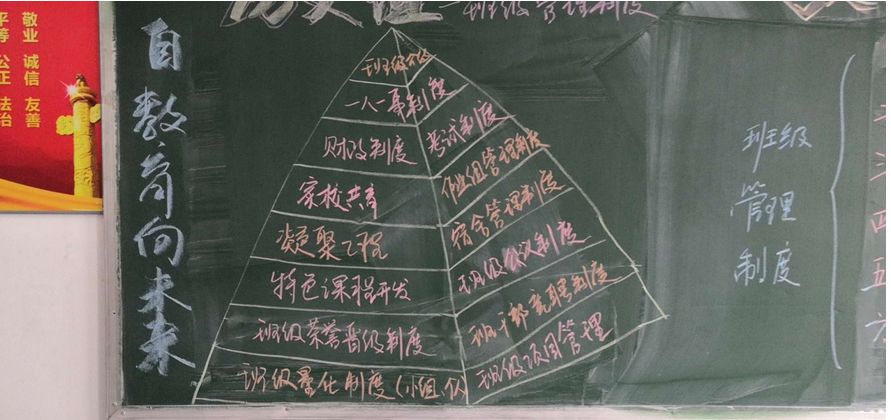 敬业 诚信 友善
平等 公正 法治
自教育向未来
班级管理制度
班级公约
一人一事制度
考试制度
财政制度
作业组管理制度
家校共育
宿舍管理制度
凝聚工程
班级会议制度
特色课程开发
班干部竞聘制度
班级荣誉晋级制度
班级项目管理
班级量化制度(小组、个
班级
管理
制度
四
五
六